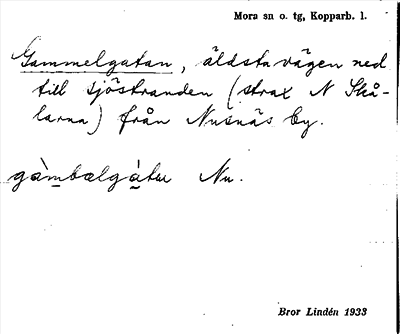 Mora sn o. tg, Kopparb. l.
Gammelgatan, äldsta vägen ned
till sjöstranden (strax N Skå-
larna) från Nusnäs by.
gàmbælgàtu Nu.
Bror Lindén 1933